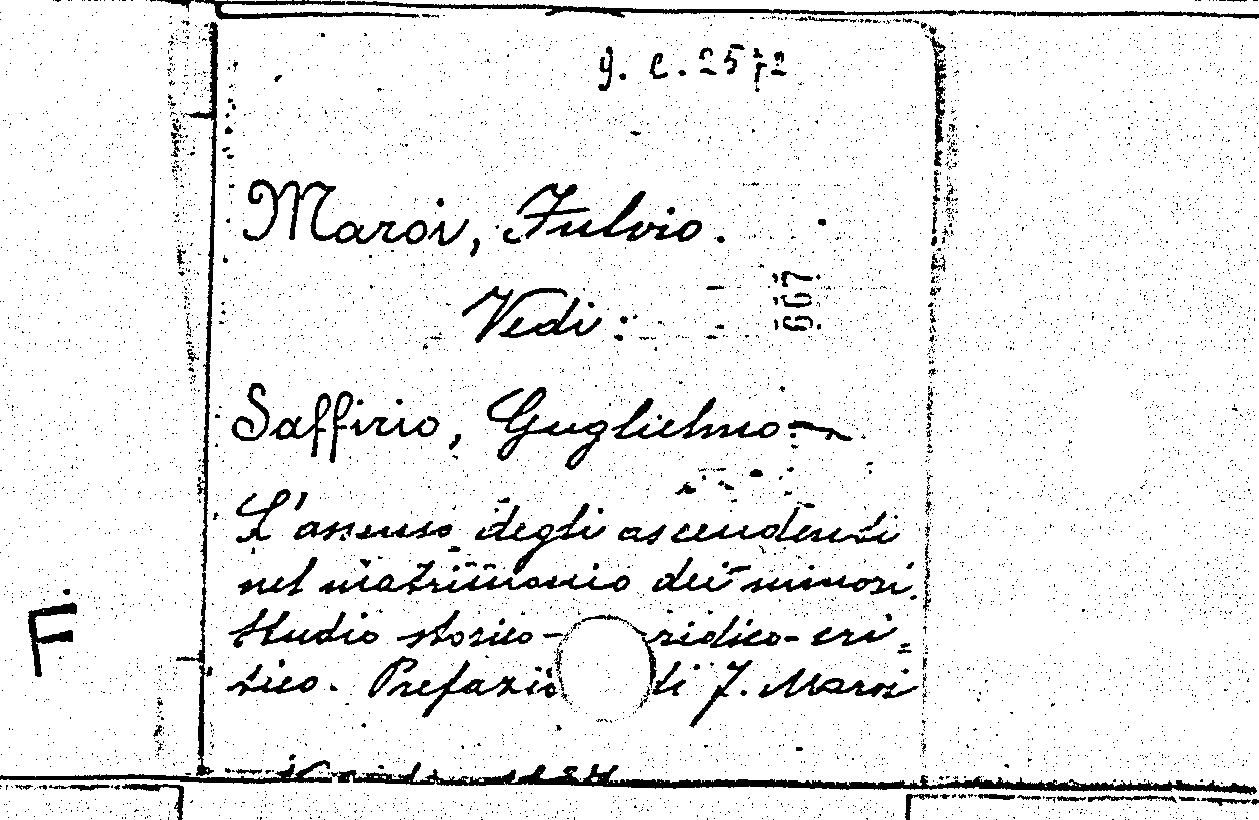 g. c. 2572
Maroi, Fulvio.
Vedi:
667
Saffirio, Guglielmo
L'assenso degli ascendenti
nel matrimonio dei minori.
Studio storico- ridico-cri=
tico. Prefazio di F. Maroi
F